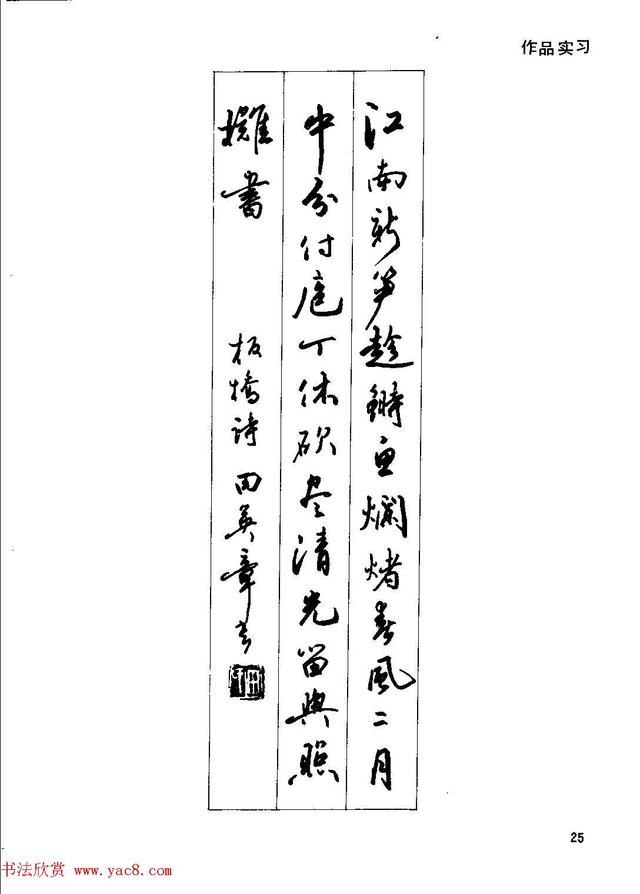 作品实习
江南新笋趁鰣鱼爛煮春風二月
中分付庖丁休砍尽清光留與照
攤書 板橋诗 田英章书
25
书法欣赏 www.yac8.com